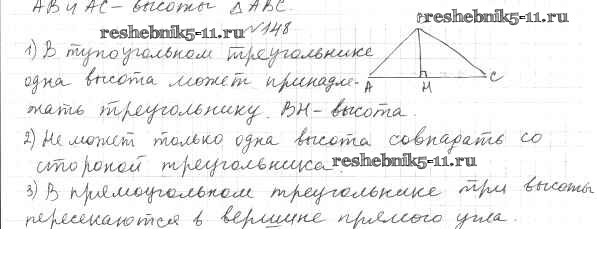 АВ и АС - высоты △ АВС.
№148
reshebnik5-11.ru
1) В тупоугольном треугольнике
одна высота может принадле-
жать треугольнику. ВН - высота.
А Н С
2) Не может только одна высота совпадать со
стороной треугольника.
reshebnik5-11.ru
3) В прямоугольном треугольнике три высоты
пересекаются в вершине прямого угла.